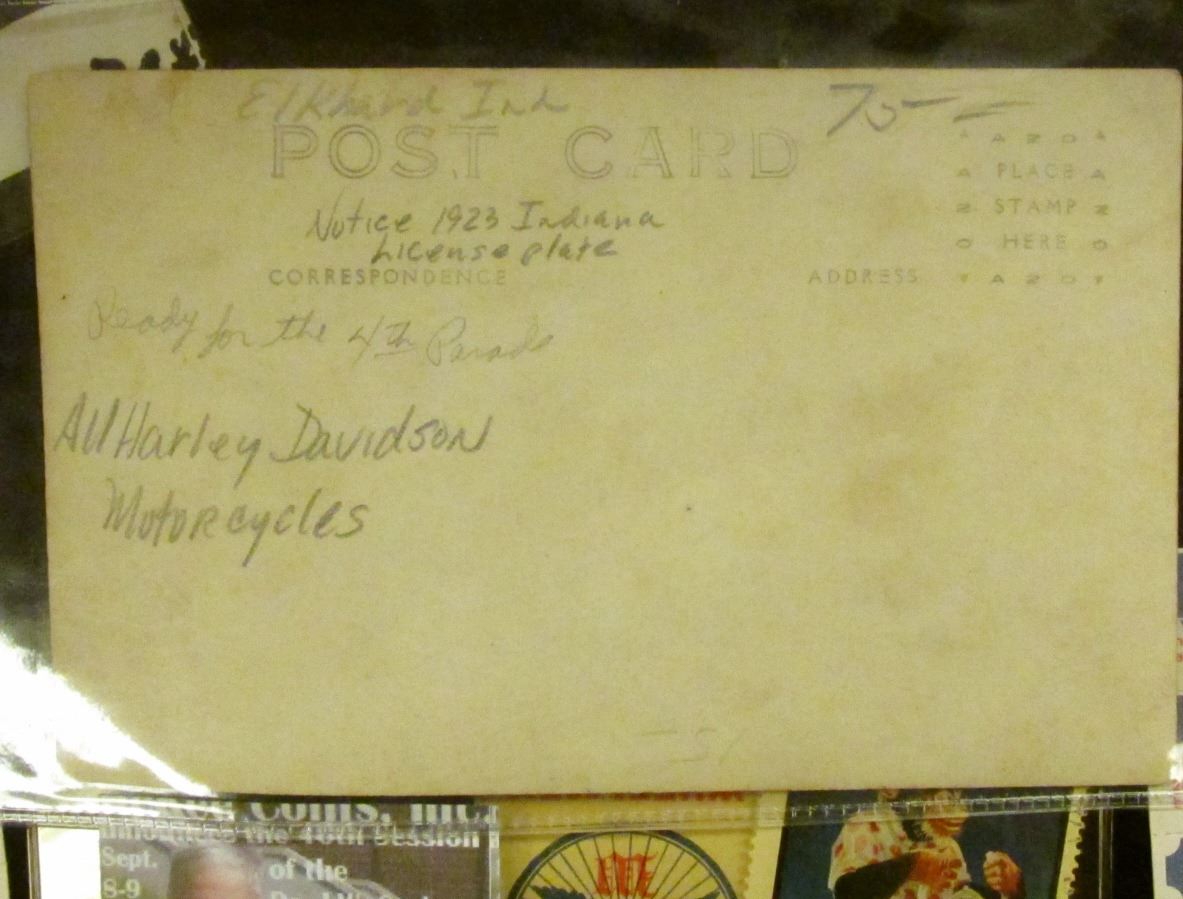 Elkhard Ind
75- -
POST CARD
A Z O
A PLACE A
Z STAMP Z
O HERE O
A Z O
Notice 1923 Indiana
License plate
CORRESPONDENCE
ADDRESS
Ready for the 4th Parade
All Harley Davidson
Motorcycles
Coins, Inc.
the 40th Session
Sept.
of the
8-9